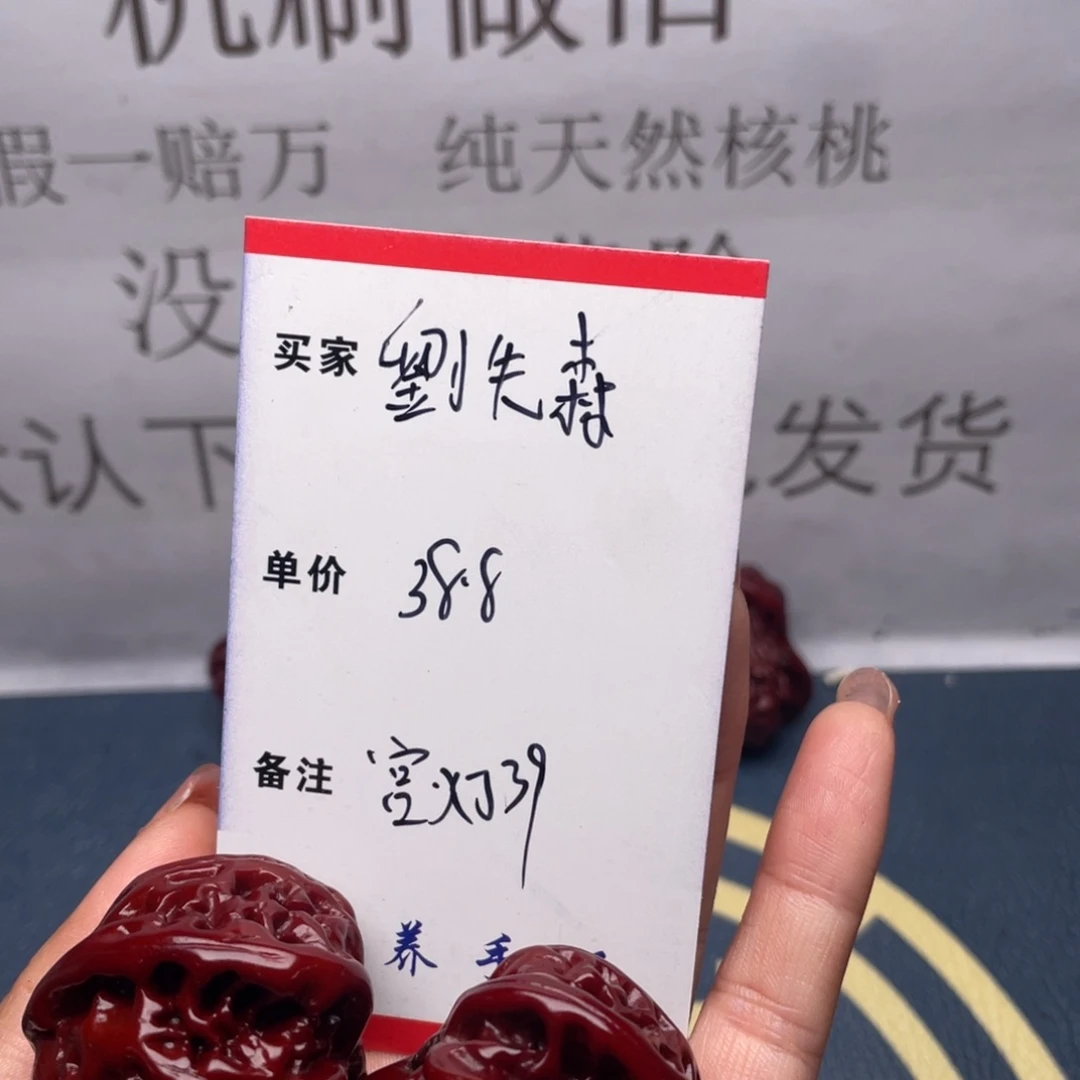 机刷做旧
假一赔万 纯天然核桃
没
认下 发货
买家 劉失森
单价 38.8
备注 宫灯39
养 手